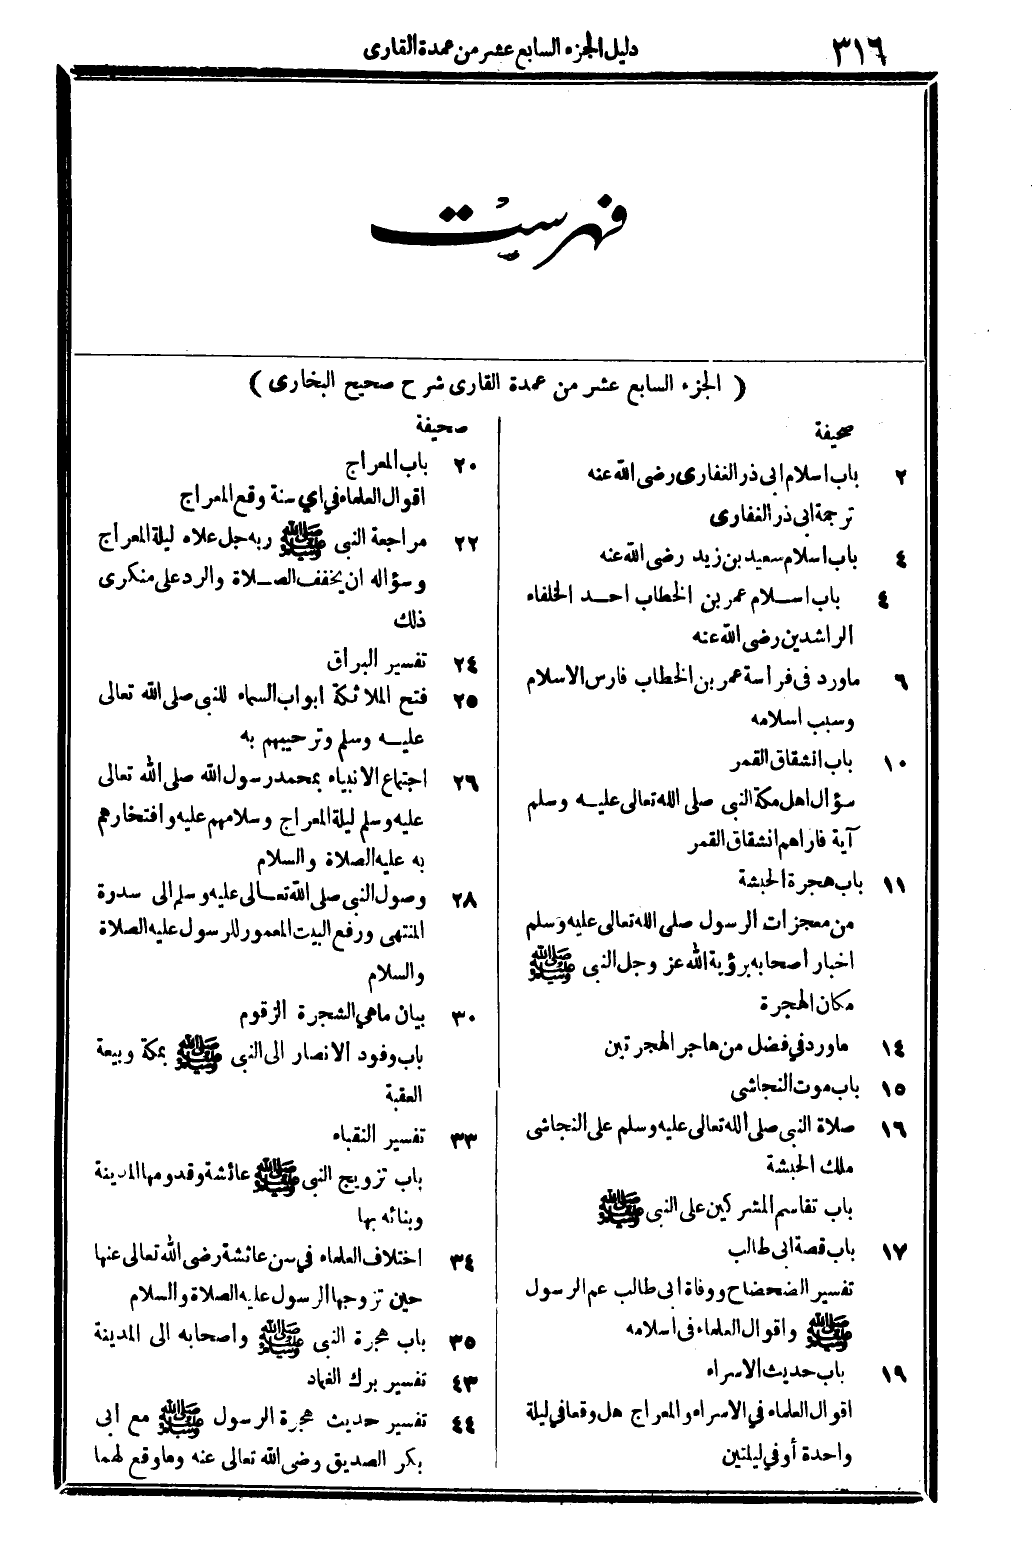 ٣١٦
دليل الجزء السابع عشر من عمدة القارى
فهرست
( الجزء السابع عشر من عمدة القارى شرح صحيح البخارى )
صحيفة
٢ باب اسلام ابى ذر الغفارى رضى الله عنه
ترجمة ابى ذر الغفارى
٤ باب اسلام سعيد بن زيد رضى الله عنه
٤ باب اسلام عمر بن الخطاب احد الخلفاء
الراشدين رضى الله عنه
٦ ماورد فى فراسة عمر بن الخطاب فارس الاسلام
وسبب اسلامه
١٠ باب انشقاق القمر
سؤال اهل مكة النبى صلى الله تعالى عليه وسلم
آية فاراهم انشقاق القمر
١١ باب هجرة الحبشة
من معجزات الرسول صلى الله تعالى عليه وسلم
اخبار أصحابه برؤية الله عز وجل النبى ﷺ
مكان الهجرة
١٤ ماورد في فضل من هاجر الهجرتين
١٥ باب موت النجاشى
١٦ صلاة النبى صلى الله تعالى عليه وسلم على النجاشى
ملك الحبشة
باب تقاسم المشركين على النبى ﷺ
١٧ باب قصة ابى طالب
تفسير الضحضاح ووفاة ابى طالب عم الرسول
ﷺ واقوال العلماء فى اسلامه
١٩ باب حديث الاسراء
اقوال العلماء في الاسراء والمعراج هل وقعا في ليلة
واحدة أو في ليلتين
صحيفة
٢٠ باب المعراج
اقوال العلماء في اي سنة وقع المعراج
٢٢ مراجعة النبى ﷺ ربه جل علاه ليلة المعراج
وسؤاله ان يخفف الصلاة والرد على منكرى
ذلك
٢٤ تفسير البراق
٢٥ فتح الملائكة ابواب السماء للنبى صلى الله تعالى
عليه وسلم وترحيبهم به
٢٦ اجتماع الانبياء بمحمد رسول الله صلى الله تعالى
عليه وسلم ليلة المعراج وسلامهم عليه وافتخارهم
به عليه الصلاة والسلام
٢٨ وصول النبى صلى الله تعالى عليه وسلم الى سدرة
المنتهى ورفع البيت المعمور للرسول عليه الصلاة
والسلام
٣٠ بيان ماهي الشجرة الزقوم
باب وفود الانصار الى النبى ﷺ بمكة وبيعة
العقبة
٣٣ تفسير النقباء
باب تزويج النبى ﷺ عائشة وقدومها المدينة
وبنائه بها
٣٤ اختلاف العلماء في سن عائشة رضى الله تعالى عنها
حين تزوجها الرسول عليه الصلاة والسلام
٣٥ باب هجرة النبى ﷺ واصحابه الى المدينة
٤٣ تفسير برك الغماد
٤٤ تفسير حديث هجرة الرسول ﷺ مع أبى
بكر الصديق رضى الله تعالى عنه وماوقع لهما